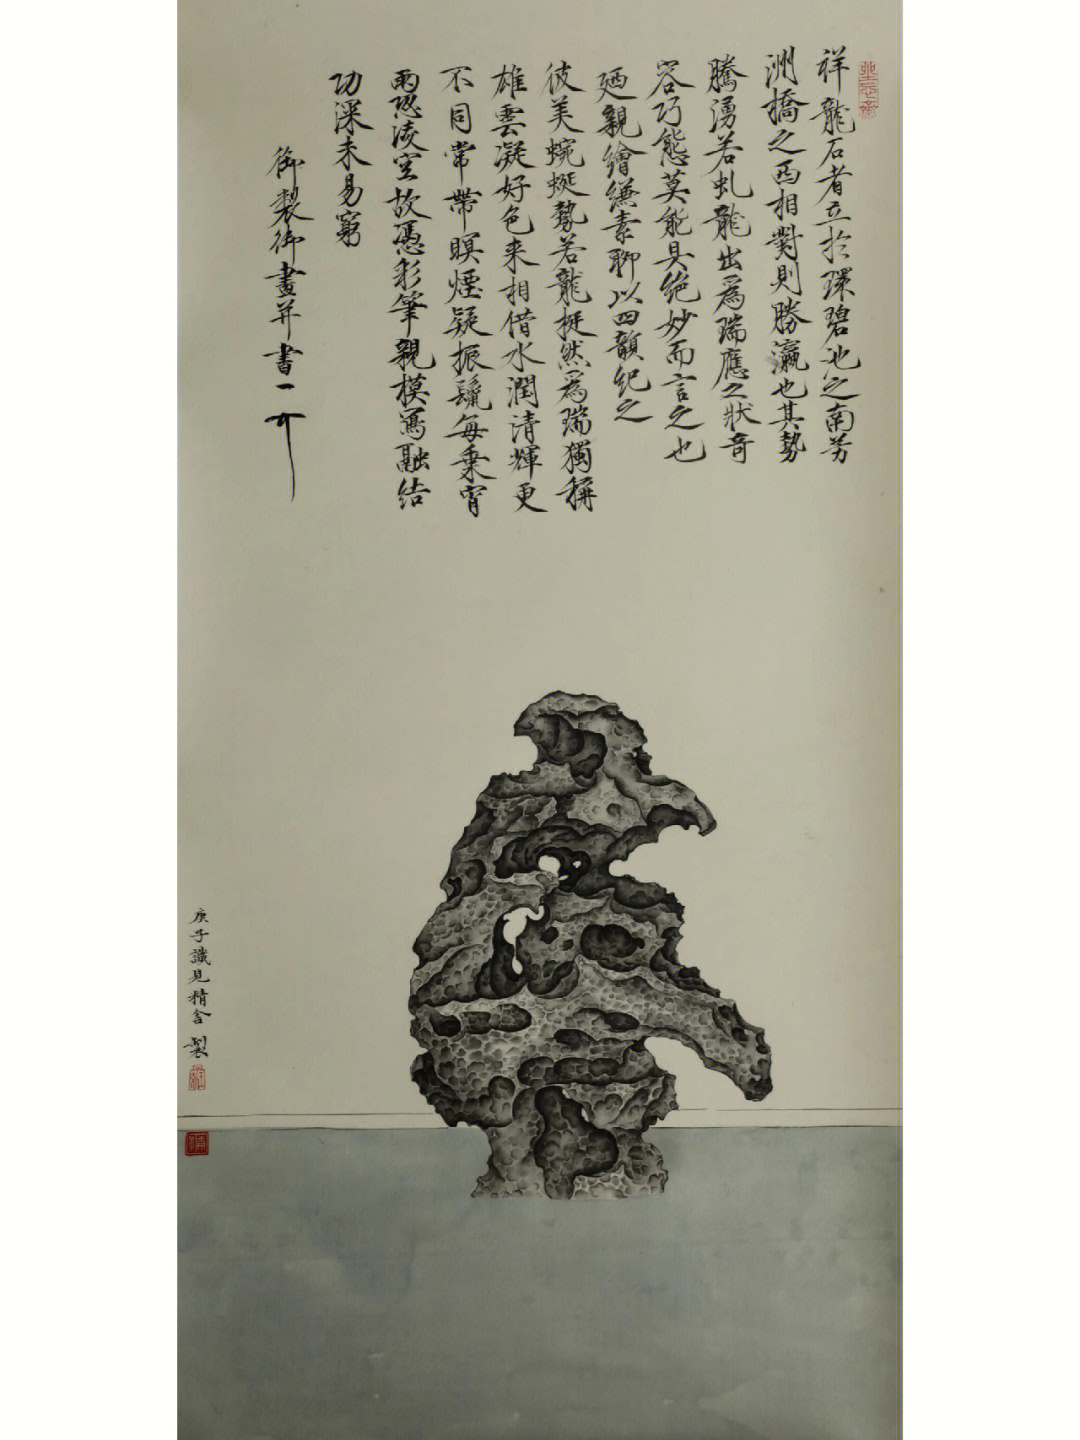 祥龍石者立於環碧池之南芳
洲橋之西相對則勝瀛也其勢
騰湧若虬龍出爲瑞應之狀奇
容巧態莫能具絶妙而言之也
廼親繪縑素聊以四韻紀之
彼美蜿蜒勢若龍挺然爲瑞獨稱
雄雲凝好色来相借水潤清輝更
不同常帶暝煙疑振鬣每乗宵
雨恐凌空故憑彩筆親模寫融結
功深未易窮
御製御畫并書
庚子識見精舍製